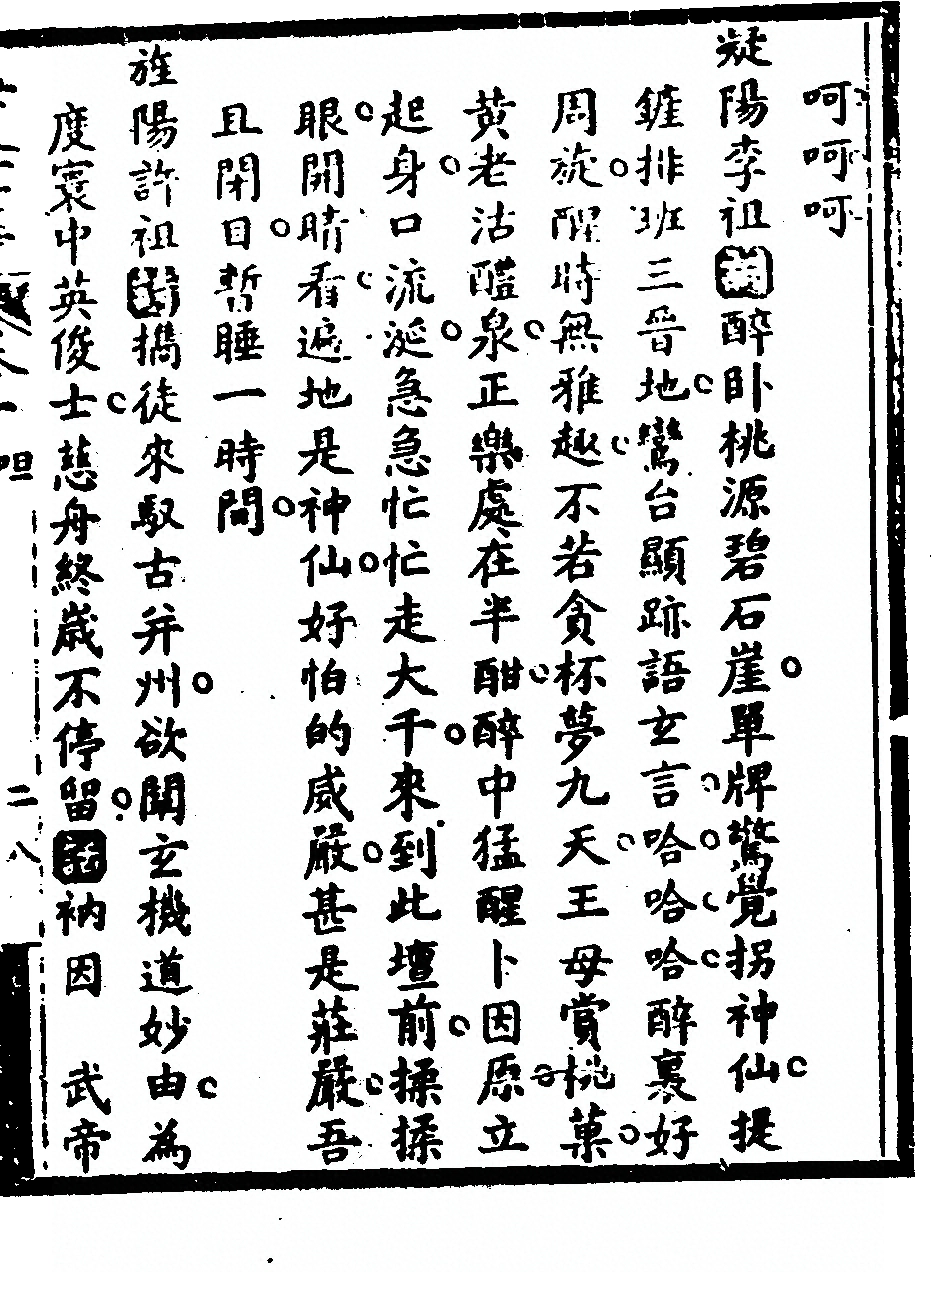 呵呵呵
凝陽李祖詞醉卧桃源碧石崖。單牌驚覺拐神仙。提
鏟排班三晉地。鸞台顯跡語玄言。哈。哈。哈。醉裏好
周旋。醒時無雅趣。不若貪杯夢九天。王母賞桃菓。
黃老沽醴泉。正樂處在半酣。醉中猛醒卜因原。立
起身。口流涎。急急忙忙走大千。來到此壇前。揉揉
眼。開睛看。遍地是神仙。好怕的威嚴。甚是莊嚴。吾
且閉目。暫睡一時間。
旌陽許祖詩擕徒來馭古并州。欲闡玄機道妙由。為
度寰中英俊士。慈舟終歲不停留。衲因 武帝
二八